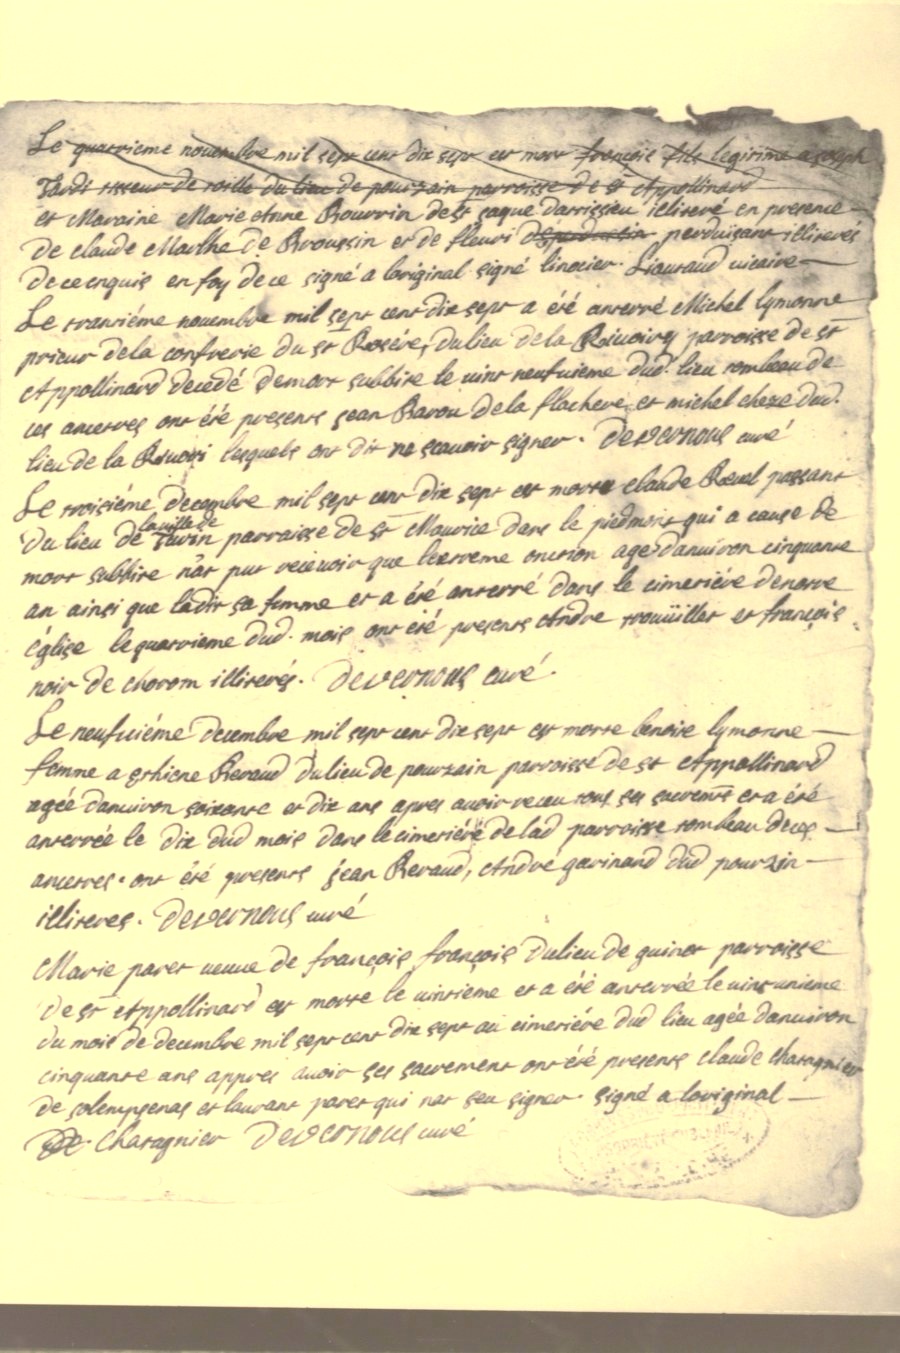 Le quatrieme novembre mil sept cent dix sept est mort françois fils legitime a joseph
Tardi tisseur de toille du lieu de pourzain parroisse de st Appollinard
et Maraine Marie Anne Bourrin de st jaque darrissieu illiteré en presence
de claude Marthe de Broussin et de fleuri perduisant illiterés
de ce enquis en foy de ce signé a loriginal signé linocier. Liouraud vicaire
Le trantiéme novembre mil sept cent dix sept a été anterré Michel lymonne
prieur dela confrerie du st Rosére, du lieu de la Rivoiry parroisse de st
Appollinard decedé demort subbite le vint neufuieme dud. lieu tombeau de
ces ancetres ont été presents jean Barou dela flachere, et michel cheze dud.
lieu de la Rivoiri lesquels ont dit ne scavoir signer. Devernous curé
Le troisiéme decembre mil sept cent dix sept est morte claude Revel passant
du lieu de la ville de Turin parroisse de st Maurice dans le piedmont qui a cause de
mort subbite n'at put recevoir que lextreme onction agé danviron cinquante
an ainsi que ladit sa femme et a été anterré dans le cimetiére de notre
église le quatrieme dud. mois ont été presents Andre trouïiller et françois
noir de chorom illiterés. Devernous curé.
Le neufuiéme decembre mil sept cent dix sept est morte benoite lymonne
femme a esthiene Reraud du lieu de pourzain parroisse de st Appollinard
agée danviron soixante et dix ans apres avoir receu tous ses sacremts et a été
anterrée le dix dud mois dans le cimetiére de lad parroisse tombeau de ces
ancetres. ont été presents jean Reraud, André gavinand dud pourzin
illiteres. Devernous curé
Marie paret veuve de françois françois du lieu de guinet parroisse
de st Appollinard est morte le vintieme et a été anterrée le vint unieme
du mois de decembre mil sept cent dix sept au cimetiére dud lieu agée danviron
cinquante ans appres avoir ses sacrement ont été presents claude charagnier
de solempsenas et laurant paret qui nat seu signer. signé a loriginal
Charagnier Devernous curé